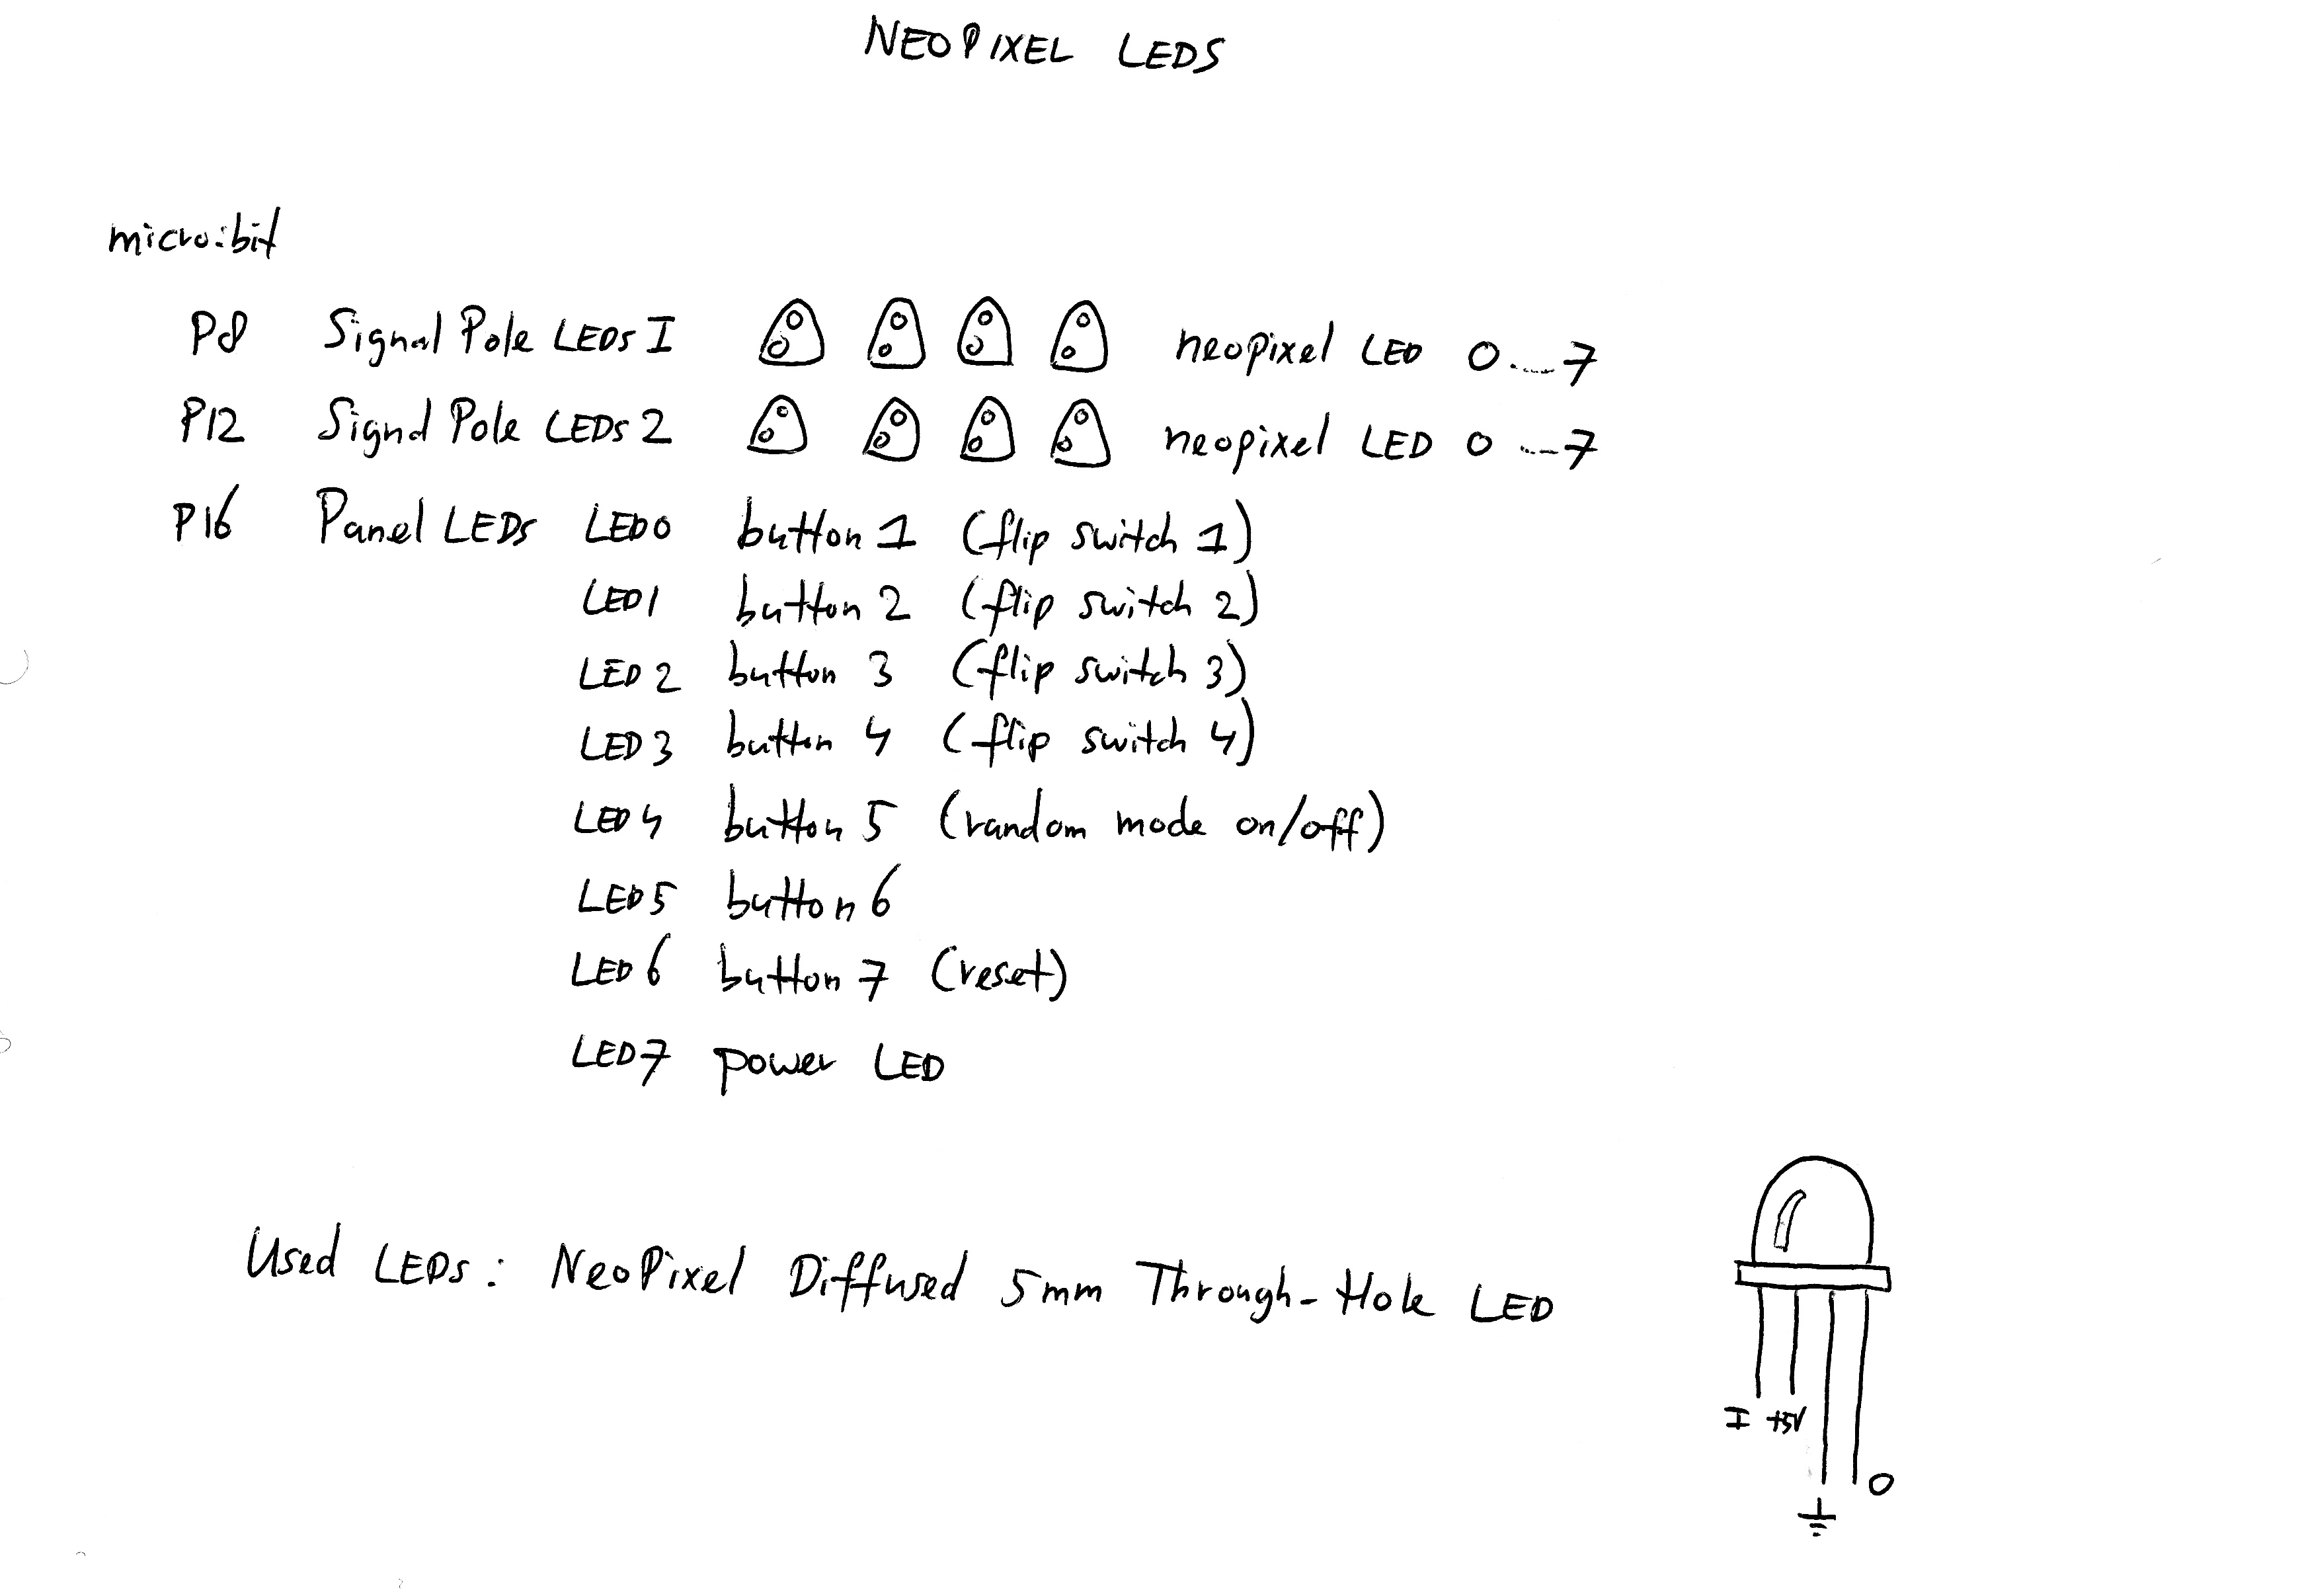 NEOPIXEL LEDS
micro:bit
P8 Signal Pole LEDs I neopixel LED 0...7
P12 Signal Pole LEDs 2 neopixel LED 0...7
P16 Panel LEDs LED0 button 1 (flip switch 1)
LED1 button 2 (flip switch 2)
LED2 button 3 (flip switch 3)
LED3 button 4 (flip switch 4)
LED4 button 5 (random mode on/off)
LED5 button 6
LED6 button 7 (reset)
LED7 power LED
Used LEDs: NeoPixel Diffused 5mm Through-Hole LED
I +5V
O